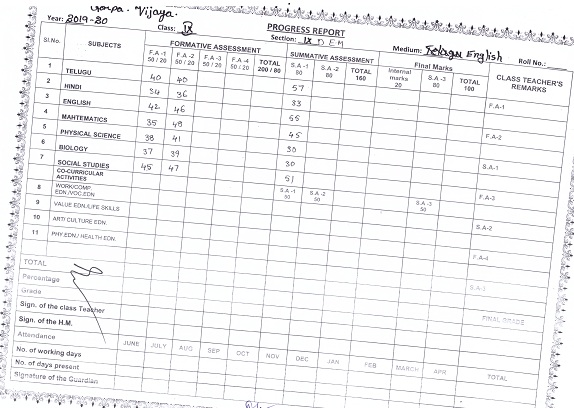 Vijaya.
Year: 2019-20
Class: IX
PROGRESS REPORT
Section: IX DEM
Medium: Telugu English
Roll No.:
Sl.No.
SUBJECTS
FORMATIVE ASSESSMENT
F.A -1 50 / 20
F.A -2 50 / 20
F.A -3 50 / 20
F.A -4 50 / 20
TOTAL 200 / 80
SUMMATIVE ASSESSMENT
S.A -1 80
S.A -2 80
TOTAL 160
Final Marks
Internal marks 20
S.A -3 80
TOTAL 100
CLASS TEACHER'S REMARKS
1 TELUGU 40 40 57
2 HINDI 34 36 33
3 ENGLISH 42 46 55
4 MAHTEMATICS 35 49 45
5 PHYSICAL SCIENCE 38 41 30
6 BIOLOGY 37 39 30
7 SOCIAL STUDIES 45 47 51
CO-CURRICULAR ACTIVITIES
8 WORK/COMP. EDN./VOC.EDN
S.A -1 50
S.A -2 50
S.A -3 50
9 VALUE EDN./LIFE SKILLS
10 ART/ CULTURE EDN.
11 PHY.EDN./ HEALTH EDN.
F.A-1
F.A-2
S.A-1
F.A-3
S.A-2
F.A-4
S.A-3
FINAL GRADE
TOTAL
Percentage
Grade
Sign. of the class Teacher
Sign. of the H.M.
Attendance JUNE JULY AUG SEP OCT NOV DEC JAN FEB MARCH APR. TOTAL
No. of working days
No. of days present
Signature of the Guardian